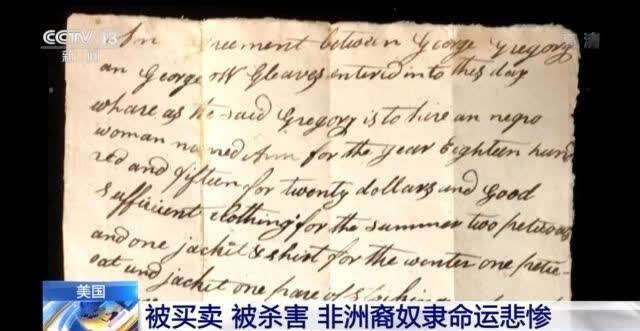 CCTV 13
新闻
高清
In agreement between George Gregory
an George W Gleaves entered into this day
whare as the said Gregory is to hire an negro
woman named Ann for the year Eighteen hund
red and fifteen for twenty dollars and Good
sufficient clothing for the summer two peticoats
and one jacket & shirt for the winter one petic
oat and jacket one pare of
美国
被买卖 被杀害 非洲裔奴隶命运悲惨